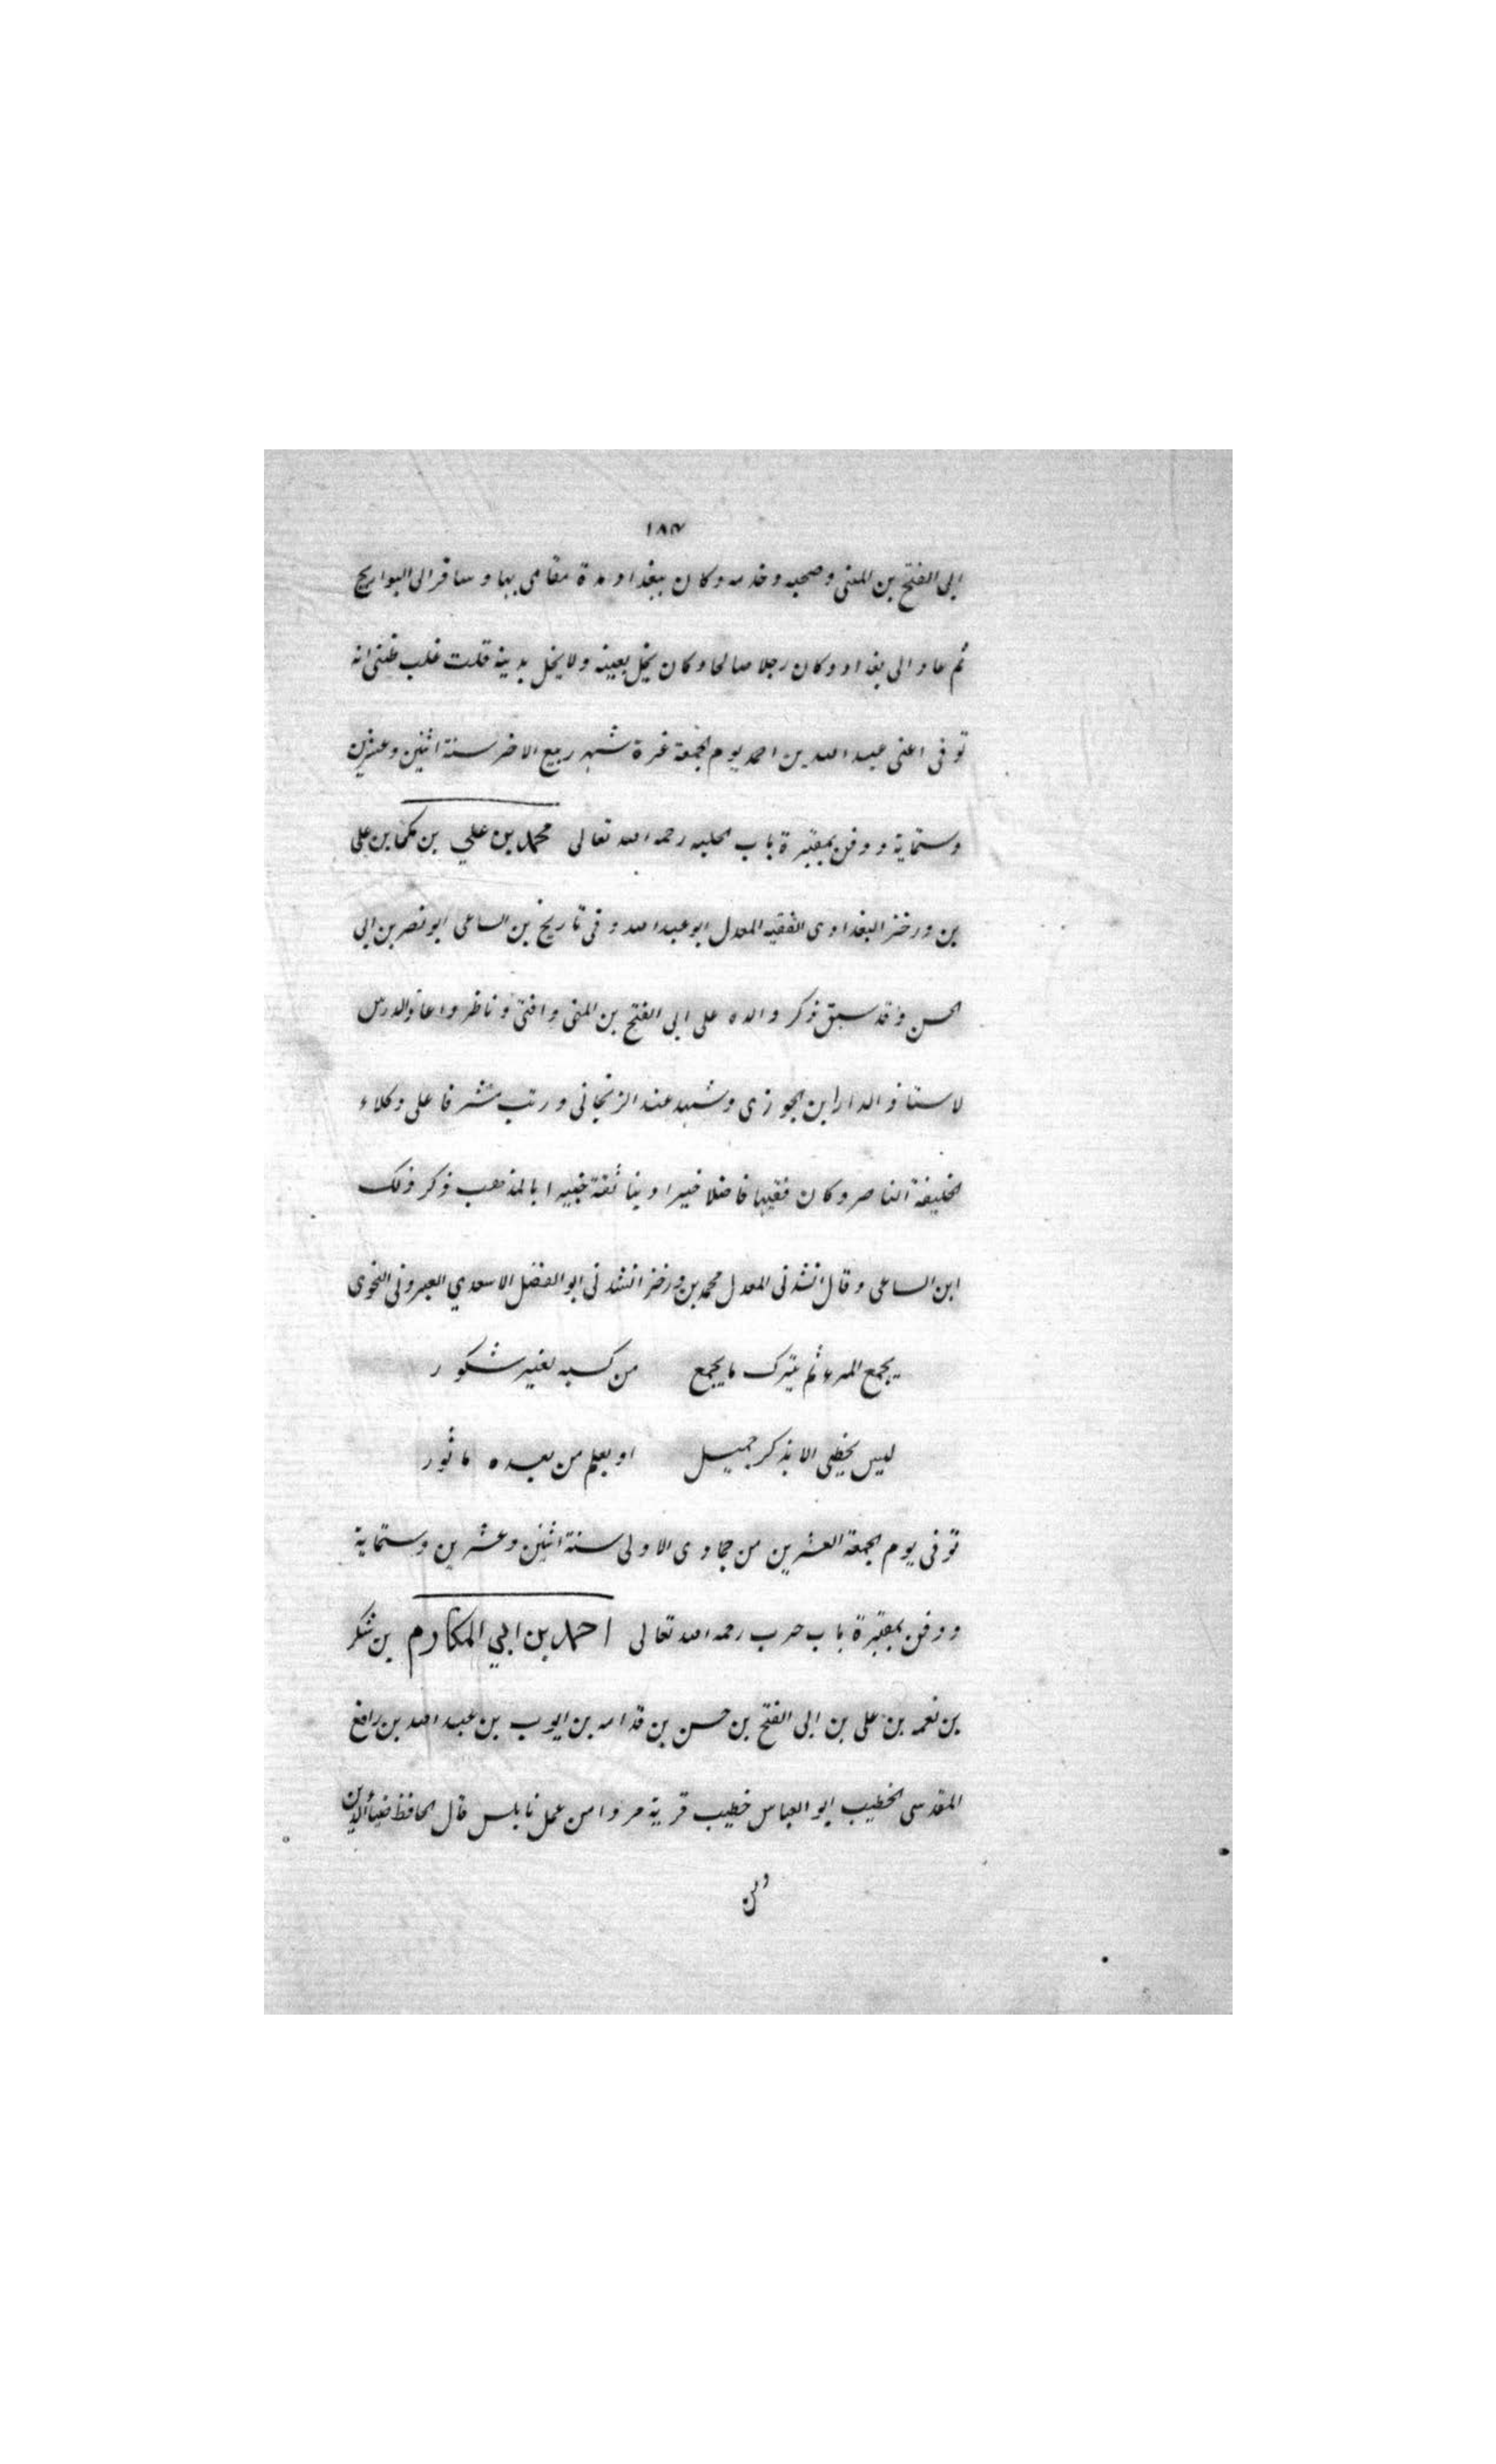 ١٨٣
ابى الفتح بن المنى وصحبه وخدمه وكان ببغداد مدة مقامى بها وسافر الى البوازيج
ثم عاد الى بغداد وكان رجلا صالحا وكان يخل بعينه ولا يخل بدينه قلت غلب ظنى انه
توفى اعنى عبد الله بن احمد يوم الجمعة غرة شهر ربيع الاخر سنة اثنين وعشرين
وستماية ودفن بمقبرة باب الحلبه رحمه الله تعالى محمد بن علي بن مكى بن على
بن ورخز البغدادى الفقيه المعدل ابو عبد الله وفى تاريخ بن الساعى ابو نصر بن ابى
الحسن وقد سبق ذكر والده على ابى الفتح بن المنى وافتى وناظر واعاد الدرس
لاستاذ الدار ابن الجوزى وشهد عند الزنجانى ورتب مشرفا على وكلاء
الخليفة الناصر وكان فقيها فاضلا خيرا دينا ثقة خبيرا بالمذهب ذكر ذلك
ابن الساعى وقال انشدنى المعدل محمد بن ورخز انشدنى ابو الفضل الاسعدي النحوى
يجمع المرء ثم يترك ما يجمع من كسبه لغير شكور
ليس يحظى الا بذكر جميل او بعلم من بعده ماثور
توفى يوم الجمعة العشرين من جمادى الاولى سنة اثنين وعشرين وستماية
ودفن بمقبرة باب حرب رحمه الله تعالى احمد بن ابي المكارم بن شكر
بن نعمه بن على بن ابى الفتح بن حسن بن قدامه بن ايوب بن عبد الله بن رافع
المقدسى الخطيب ابو العباس خطيب قرية مردا من عمل نابلس قال الحافظ ضياء الدين